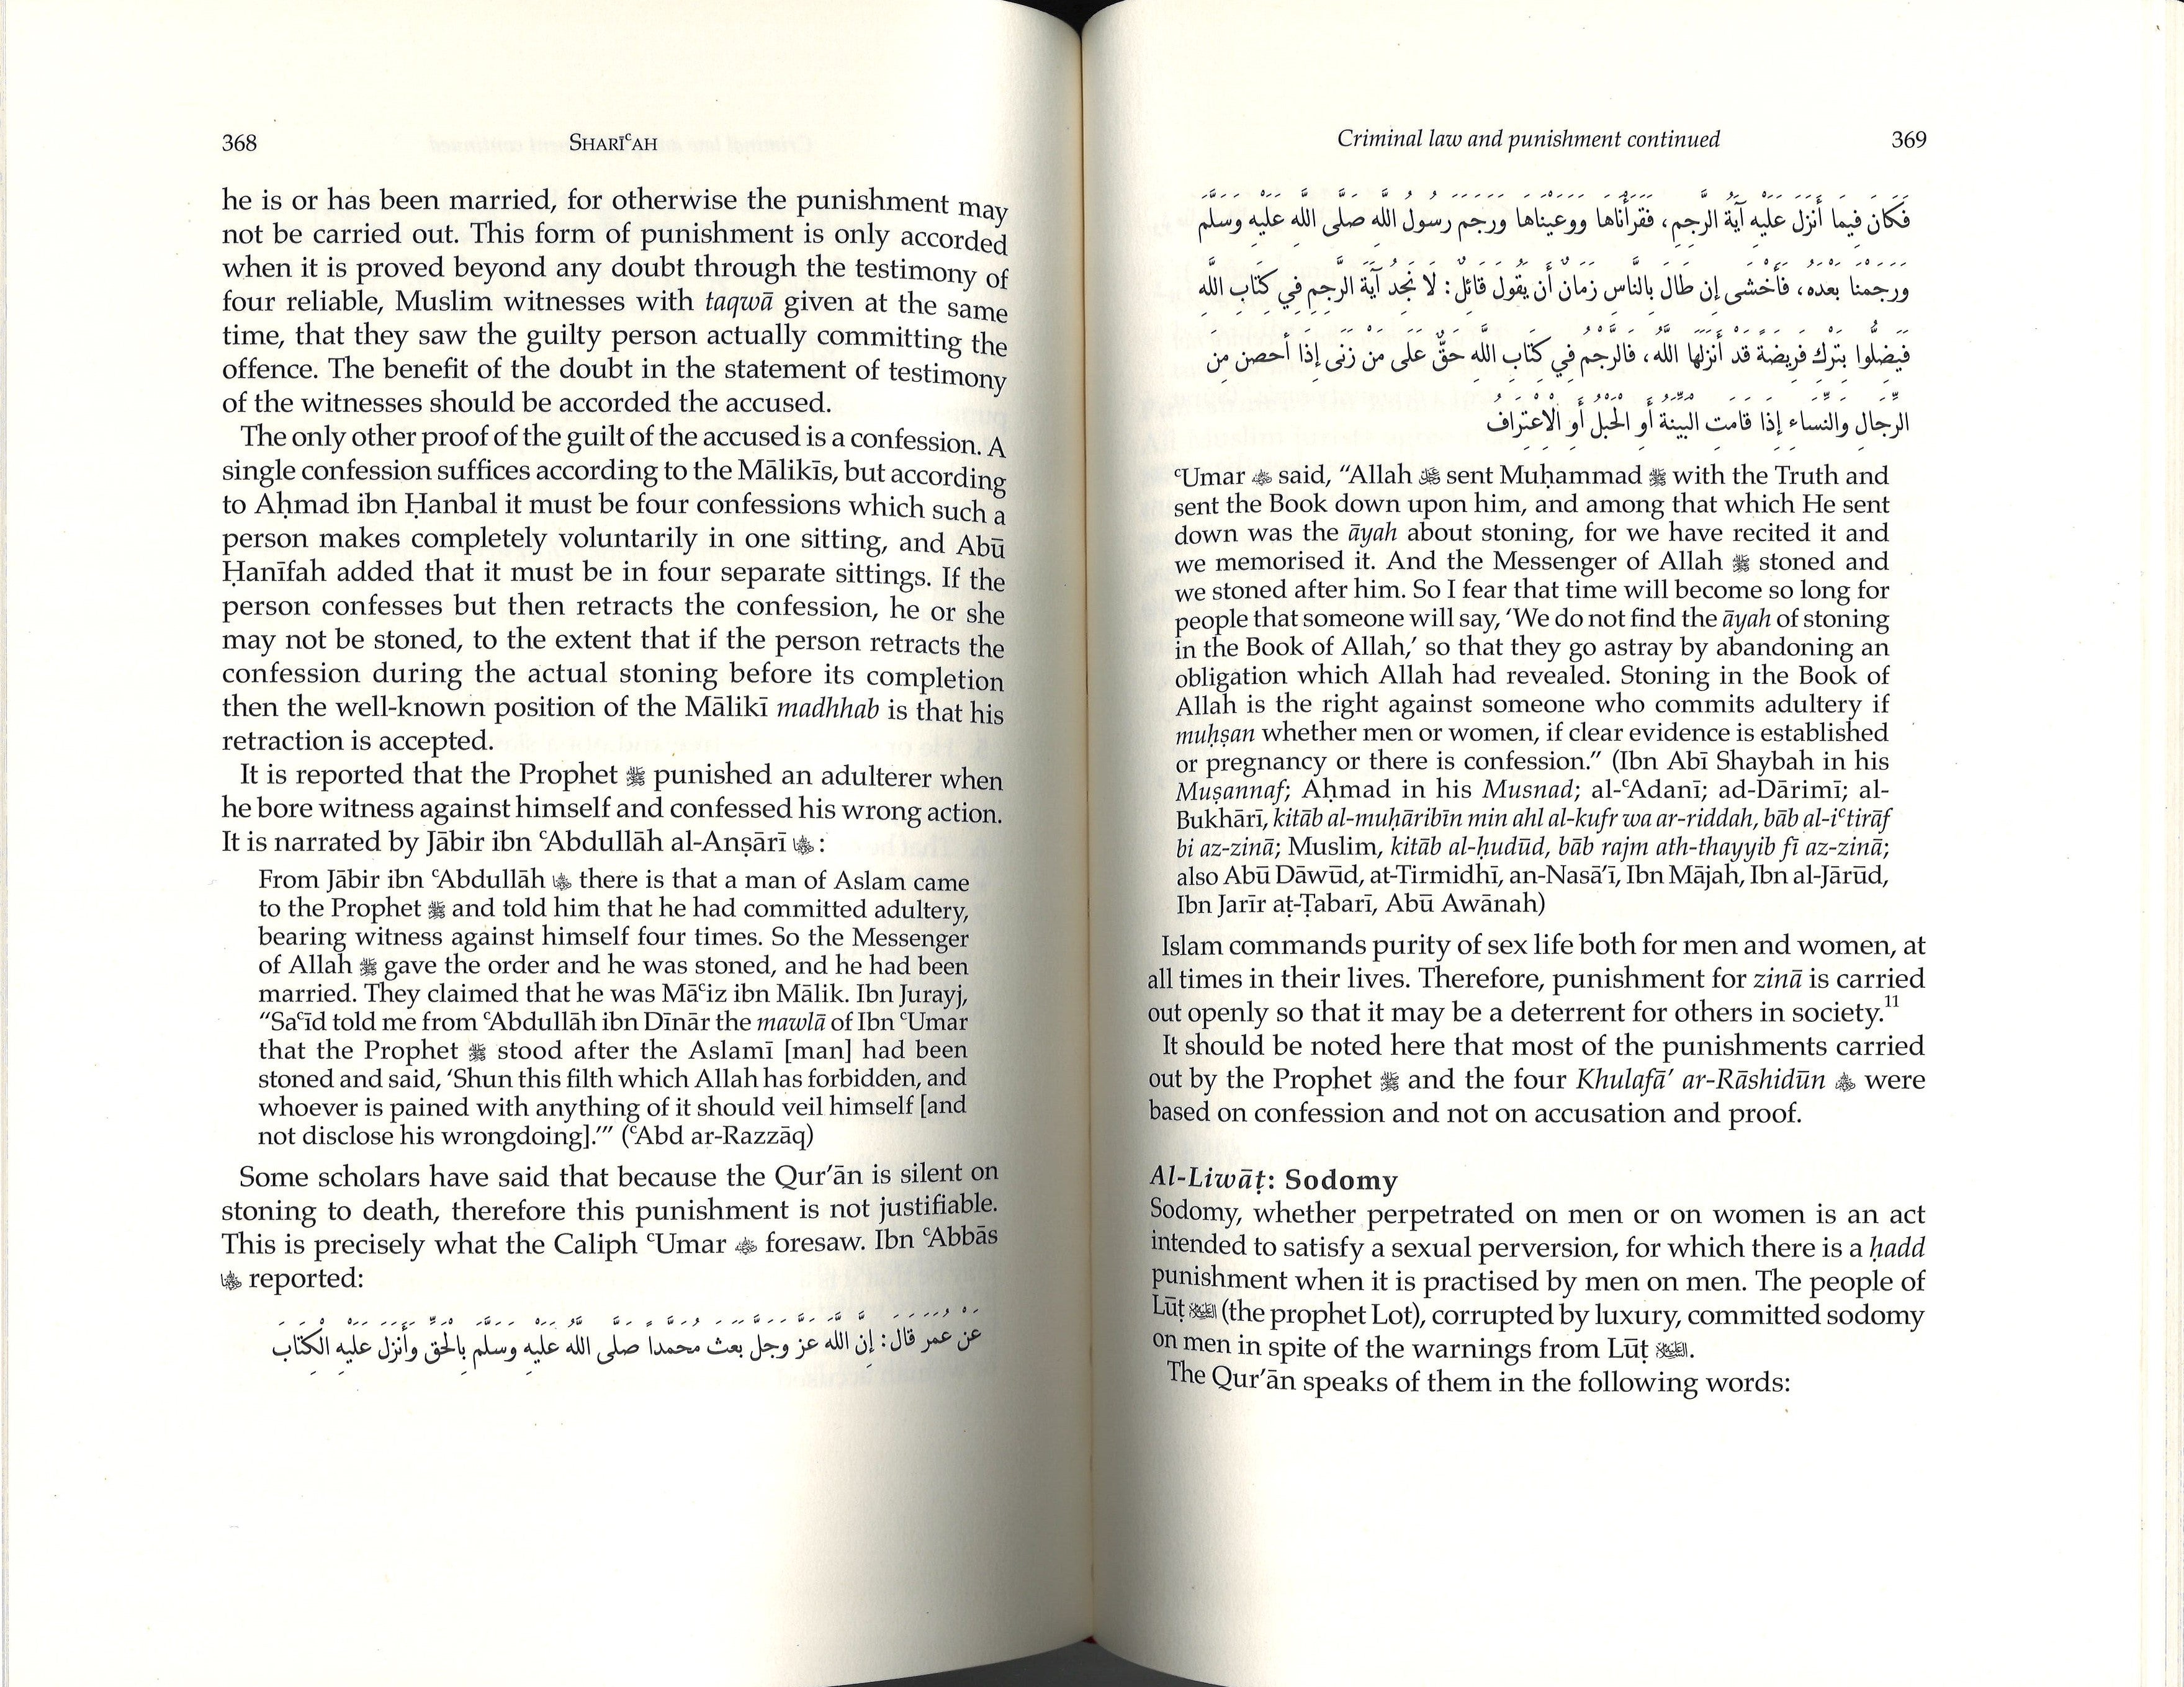 368
SHARĪʿAH
he is or has been married, for otherwise the punishment may
not be carried out. This form of punishment is only accorded
when it is proved beyond any doubt through the testimony of
four reliable, Muslim witnesses with taqwā given at the same
time, that they saw the guilty person actually committing the
offence. The benefit of the doubt in the statement of testimony
of the witnesses should be accorded the accused.
The only other proof of the guilt of the accused is a confession. A
single confession suffices according to the Mālikīs, but according
to Aḥmad ibn Ḥanbal it must be four confessions which such a
person makes completely voluntarily in one sitting, and Abū
Ḥanīfah added that it must be in four separate sittings. If the
person confesses but then retracts the confession, he or she
may not be stoned, to the extent that if the person retracts the
confession during the actual stoning before its completion
then the well-known position of the Mālikī madhhab is that his
retraction is accepted.
It is reported that the Prophet ﷺ punished an adulterer when
he bore witness against himself and confessed his wrong action.
It is narrated by Jābir ibn ʿAbdullāh al-Anṣārī :
From Jābir ibn ʿAbdullāh there is that a man of Aslam came
to the Prophet ﷺ and told him that he had committed adultery,
bearing witness against himself four times. So the Messenger
of Allah ﷺ gave the order and he was stoned, and he had been
married. They claimed that he was Māʿiz ibn Mālik. Ibn Jurayj,
“Saʿīd told me from ʿAbdullāh ibn Dīnār the mawlā of Ibn ʿUmar
that the Prophet ﷺ stood after the Aslamī [man] had been
stoned and said, ‘Shun this filth which Allah has forbidden, and
whoever is pained with anything of it should veil himself [and
not disclose his wrongdoing].’” (ʿAbd ar-Razzāq)
Some scholars have said that because the Qur’ān is silent on
stoning to death, therefore this punishment is not justifiable.
This is precisely what the Caliph ʿUmar foresaw. Ibn ʿAbbās
reported:
عَنْ عُمَرَ قَالَ: إِنَّ اللَّهَ عَزَّ وَجَلَّ بَعَثَ مُحَمَّدًا صَلَّى اللَّهُ عَلَيْهِ وَسَلَّمَ بِالْحَقِّ وَأَنْزَلَ عَلَيْهِ الْكِتَابَ
Criminal law and punishment continued
369
فَكَانَ فِيمَا أَنْزَلَ عَلَيْهِ آيَةُ الرَّجْمِ، فَقَرَأْنَاهَا وَوَعَيْنَاهَا وَرَجَمَ رَسُولُ اللَّهِ صَلَّى اللَّهُ عَلَيْهِ وَسَلَّمَ
وَرَجَمْنَا بَعْدَهُ، فَأَخْشَى إِنْ طَالَ بِالنَّاسِ زَمَانٌ أَنْ يَقُولَ قَائِلٌ: لَا نَجِدُ آيَةَ الرَّجْمِ فِي كِتَابِ اللَّهِ
فَيَضِلُّوا بِتَرْكِ فَرِيضَةٍ قَدْ أَنْزَلَهَا اللَّهُ، فَالرَّجْمُ فِي كِتَابِ اللَّهِ حَقٌّ عَلَى مَنْ زَنَى إِذَا أُحْصِنَ مِنَ
الرِّجَالِ وَالنِّسَاءِ إِذَا قَامَتِ الْبَيِّنَةُ أَوِ الْحَبَلُ أَوِ الْاِعْتِرَافُ
ʿUmar said, “Allah sent Muḥammad ﷺ with the Truth and
sent the Book down upon him, and among that which He sent
down was the āyah about stoning, for we have recited it and
we memorised it. And the Messenger of Allah ﷺ stoned and
we stoned after him. So I fear that time will become so long for
people that someone will say, ‘We do not find the āyah of stoning
in the Book of Allah,’ so that they go astray by abandoning an
obligation which Allah had revealed. Stoning in the Book of
Allah is the right against someone who commits adultery if
muḥṣan whether men or women, if clear evidence is established
or pregnancy or there is confession.” (Ibn Abī Shaybah in his
Muṣannaf; Aḥmad in his Musnad; al-ʿAdanī; ad-Dārimī; al-
Bukhārī, kitāb al-muḥāribīn min ahl al-kufr wa ar-riddah, bāb al-iʿtirāf
bi az-zinā; Muslim, kitāb al-ḥudūd, bāb rajm ath-thayyib fī az-zinā;
also Abū Dāwūd, at-Tirmidhī, an-Nasā’ī, Ibn Mājah, Ibn al-Jārūd,
Ibn Jarīr aṭ-Ṭabarī, Abū Awānah)
Islam commands purity of sex life both for men and women, at
all times in their lives. Therefore, punishment for zinā is carried
out openly so that it may be a deterrent for others in society.11
It should be noted here that most of the punishments carried
out by the Prophet ﷺ and the four Khulafā’ ar-Rāshidūn were
based on confession and not on accusation and proof.
Al-Liwāṭ: Sodomy
Sodomy, whether perpetrated on men or on women is an act
intended to satisfy a sexual perversion, for which there is a ḥadd
punishment when it is practised by men on men. The people of
Lūṭ (the prophet Lot), corrupted by luxury, committed sodomy
on men in spite of the warnings from Lūṭ .
The Qur’ān speaks of them in the following words: